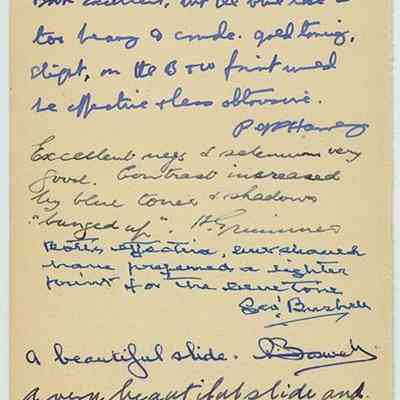 Both excellent, but the blue is a
too heavy & crude. gold toning,
slight, on the B & W print would
be effective & less obtrusive.
P Harvey
Excellent negs & selenium very
good. Contrast increased
by blue tones & shadows
"bunged up". H. Grimmer
Both effective, but should
have preferred a lighter
print for the blue tone
Geo. Bushell
A beautiful slide. Boswell
A very beautiful slide and